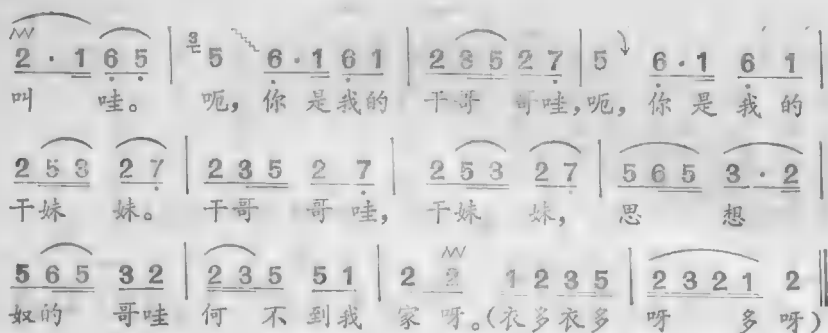 2 · 1 6 5 | 3 5 6 · 1 6 1 | 2 3 5 2 7 | 5 6 · 1 6 1 |
叫 哇。 呃, 你 是 我 的 干 哥 哥 哇, 呃, 你 是 我 的
2 5 3 2 7 | 2 3 5 2 7 | 2 5 3 2 7 | 5 6 5 3 · 2 |
干 妹 妹。 干 哥 哥 哇, 干 妹 妹, 思 想
5 6 5 3 2 | 2 3 5 5 1 | 2 2 1 2 3 5 | 2 3 2 1 2 ‖
奴 的 哥 哇 何 不 到 我 家 呀。(衣 多 衣 多 呀 多 呀)